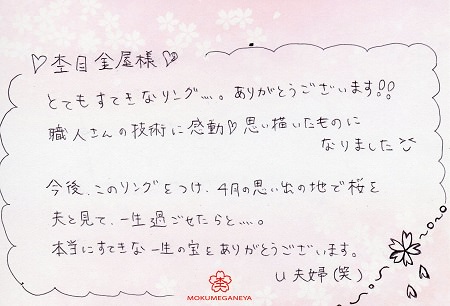 ♡杢目金屋様♡
とてもすてきなリング…。ありがとうございます!!
職人さんの技術に感動♡思い描いたものに
なりました
今後、このリングをつけ、4月の思い出の地で桜を
夫と見て、一生過ごせたらと…。
本当にすてきな一生の宝をありがとうございます。
U夫婦(笑)
MOKUMEGANEYA